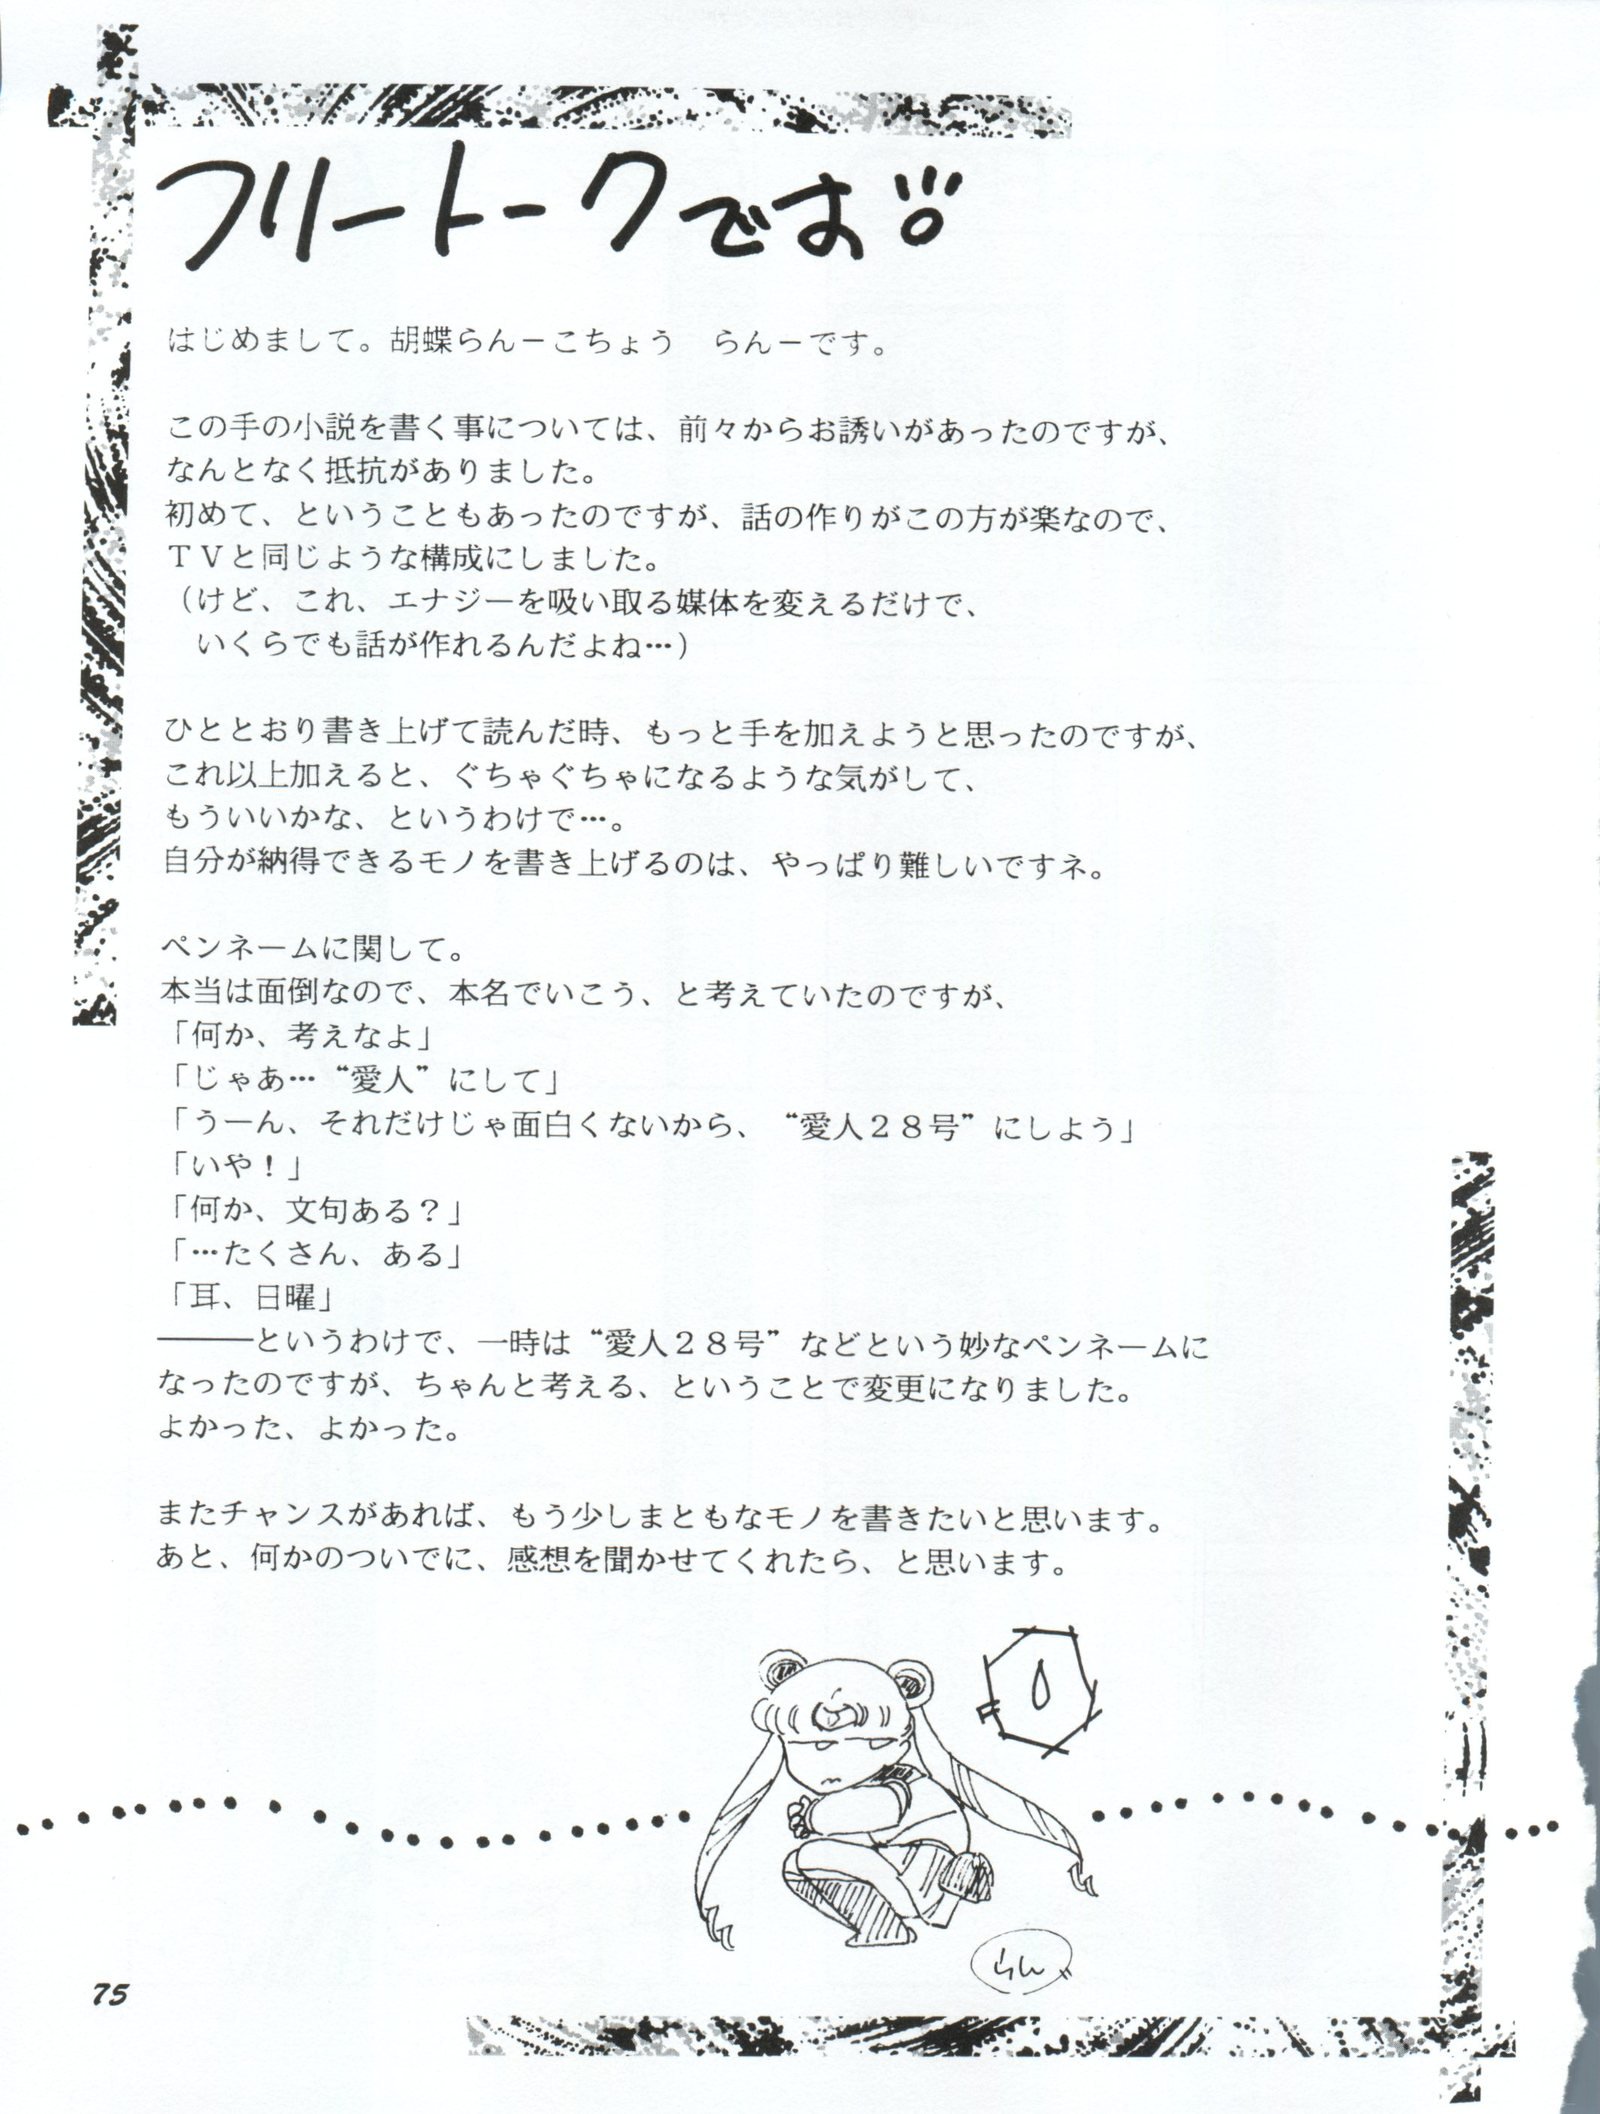 フリートークです。
はじめまして。胡蝶らん－こちょう　らん－です。
この手の小説を書く事については、前々からお誘いがあったのですが、
なんとなく抵抗がありました。
初めて、ということもあったのですが、話の作りがこの方が楽なので、
ＴＶと同じような構成にしました。
（けど、これ、エナジーを吸い取る媒体を変えるだけで、
　いくらでも話が作れるんだよね…）
ひととおり書き上げて読んだ時、もっと手を加えようと思ったのですが、
これ以上加えると、ぐちゃぐちゃになるような気がして、
もういいかな、というわけで…。
自分が納得できるモノを書き上げるのは、やっぱり難しいですネ。
ペンネームに関して。
本当は面倒なので、本名でいこう、と考えていたのですが、
「何か、考えなよ」
「じゃあ…“愛人”にして」
「うーん、それだけじゃ面白くないから、“愛人２８号”にしよう」
「いや！」
「何か、文句ある？」
「…たくさん、ある」
「耳、日曜」
―――というわけで、一時は“愛人２８号”などという妙なペンネームに
なったのですが、ちゃんと考える、ということで変更になりました。
よかった、よかった。
またチャンスがあれば、もう少しまともなモノを書きたいと思います。
あと、何かのついでに、感想を聞かせてくれたら、と思います。
らん
75